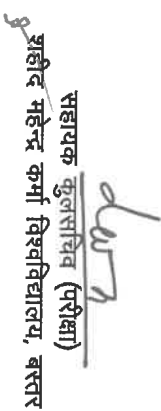 सहायक कुलसचिव (परीक्षा)
शहीद महेन्द्र कर्मा विश्वविद्यालय, बस्तर